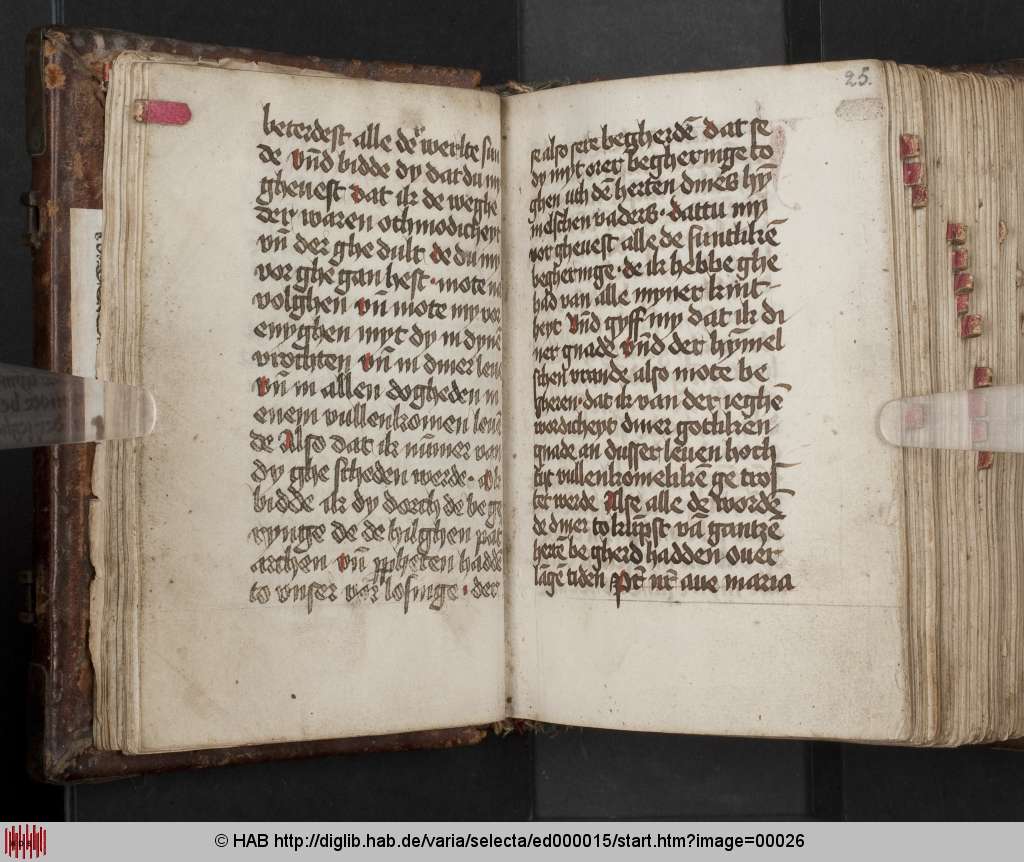 beterdest alle der werlte sun
de vnd bidde dy dat du my
gheuest dat ik de weghe
dyn waren othmodicheyt
vn̄ der ghe dult de du my
vor ghe gan hest · mote na
volghen vn̄ mote my vor
enyghen myt dy in dynē
vrochten vn̄ in diner leue
vn̄ in allen dogheden in
enem vullenkomen leuē
de Also dat ik nūmer van
dy ghe scheden werde · Ok
bidde ik dy dorch de be ge
rynge de de hilghen patri
archen vn̄ ꝓpheten hadde
to vnser vor losinge · der
25.
se also sere begherdē dat se
dy myt orer begheringe to
ghen uth dē herten dines hȳ
melschen vaders · dattu my
vor gheuest alle de suntlikē
begheringe · de ik hebbe ghe
had van alle myner kint-
heyt vnd gyff my dat ik di
ner gnade vnd der hȳmel
schen vraude also mote be
gheren · dat ik van der ieghē
wordicheyt diner gotliken
gnade an dusser leuen hoch
tijt vullenkomelikē ge tros
tet werde Alse alle de wordē
de diner to kūpst vā gantzē
hertē be gherd hadden ouer
lāgē tiden Pr̄ nr̄ aue maria
© HAB http://diglib.hab.de/varia/selecta/ed000015/start.htm?image=00026